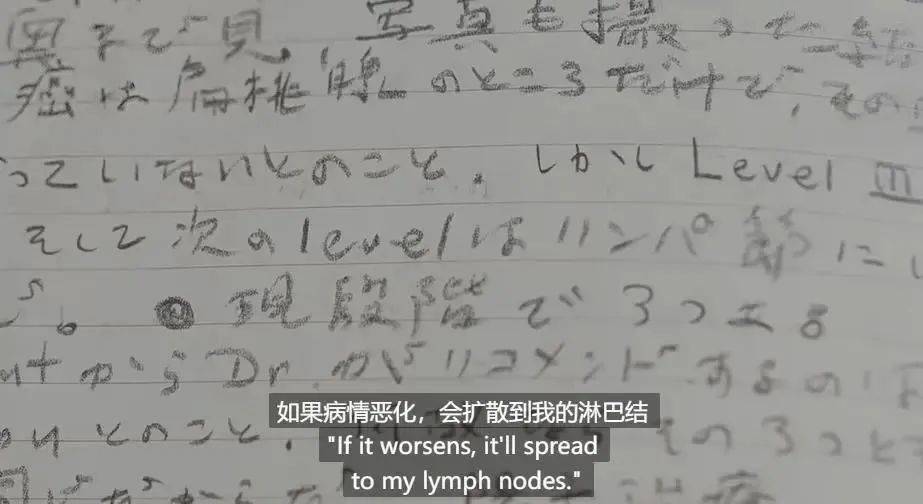 奥まで見、写真も撮った結
癌は扁桃腺のところだけで、その
っていないとのこと。しかし Level III
そして次のlevelはリンパ節に
る。現段階で3つある
からDr.がリコメンドするの
とのこと。 の3つと
治療
如果病情恶化，会扩散到我的淋巴结
"If it worsens, it'll spread
to my lymph nodes."